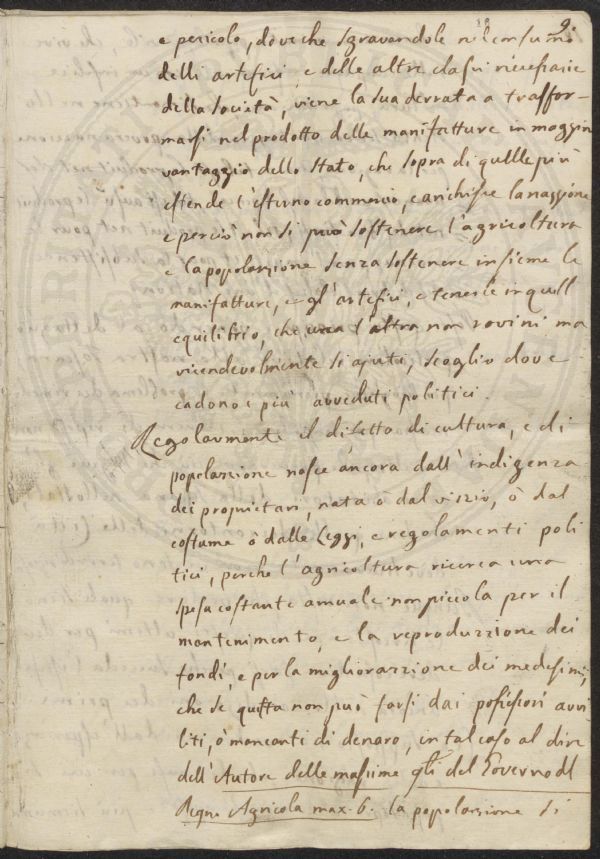 9.
e pericolo, doveche sgravandole nel consumo
delli artefici, e delle altre classi necessarie
della società, viene la sua derrata a trasfor-
marsi nel prodotto delle manifatture in maggior
vantaggio dello stato, che sopra di quelle più
estende l'esterno commercio, e arichisce la nazzione
e perciò non si può sostenere l'agricoltura
e la popolazione senza sostenere insieme le
manifatture, e gl'artefici, e tenerle in quell
equilibrio, che una l'altra non rovini ma
vicendevolmente si ajuti, scoglio dove
cadono i più avveduti politici.
Regolarmente il difetto di cultura, e di
popolazione nasce ancora dall'indigenza
dei proprietari, nata ò dal vizio, ò dal
costume ò dalle Leggi, e regolamenti poli
tici, perche l'agricoltura ricerca una
spesa costante annuale non piccola per il
mantenimento, e la reproduzzione dei
fondi, e per la migliorazzione dei medesimi,
che se questa non può farsi dai possessori avvi
liti, ò mancanti di denaro, in tal caso al dire
dell'Autore delle massime gli del Governo dl
Regno Agricola max. 6. la popolazione si